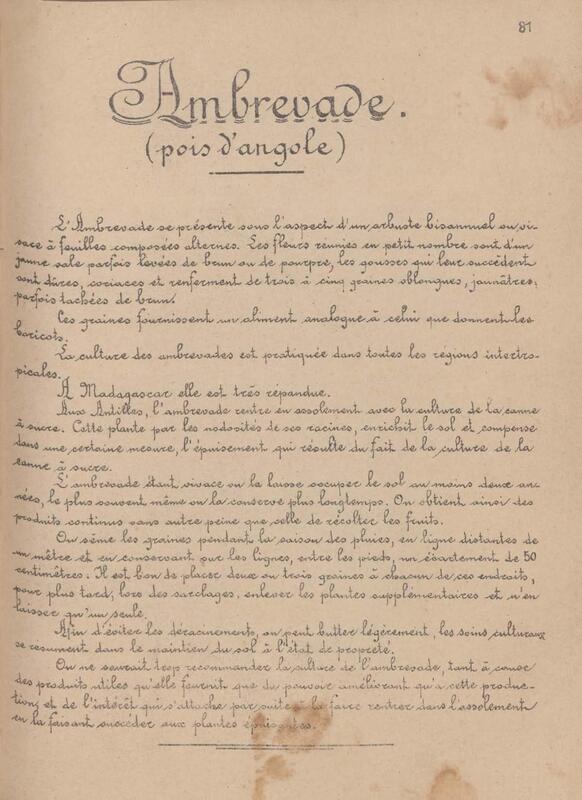 81
Ambrevade.
(pois d'angole)
L'Ambrevade se présente sous l'aspect d'un arbuste bisannuel ou vi-
vace à feuilles composées alternes. Les fleurs réunies en petit nombre sont d'un
jaune sale parfois lavées de brun ou de pourpre, les gousses qui leur succèdent
sont dures, coriaces et renferment de trois à cinq graines oblongues, jaunâtres,
parfois tachées de brun.
Ces graines fournissent un aliment analogue à celui que donnent les
haricots.
La culture des ambrevades est pratiquée dans toutes les régions intertro-
picales.
A Madagascar elle est très répandue.
Aux Antilles, l'ambrevade rentre en assolement avec la culture de la canne
à sucre. Cette plante par les nodosités de ses racines, enrichit le sol et compense
dans une certaine mesure, l'épuisement qui résulte du fait de la culture de la
canne à sucre.
L'ambrevade étant vivace on la laisse occuper le sol au moins deux an-
nées, le plus souvent même on la conserve plus longtemps. On obtient ainsi des
produits continus sans autre peine que celle de récolter les fruits.
On sème les graines pendant la saison des pluies, en ligne distantes de
un mètre et en conservant sur les lignes, entre les pieds, un écartement de 50
centimètres. Il est bon de placer deux ou trois graines à chacun de ces endroits,
pour plus tard, lors des sarclages, enlever les plantes supplémentaires et n'en
laisser qu'un seule.
Afin d'éviter les déracinements, on peut butter légèrement, les soins culturaux
se résument dans le maintien du sol à l'état de propreté.
On ne saurait trop recommander la culture de l'ambrevade, tant à cause
des produits utiles qu'elle fournit que du pouvoir améliorant qu'a cette produc-
tion, et de l'intérêt qui s'attache par suite à la faire rentrer dans l'assolement
en la faisant succéder aux plantes épuisantes.